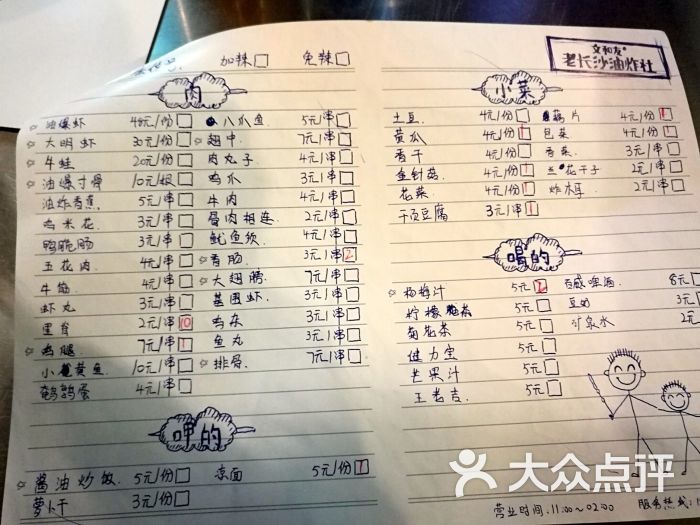 加辣 免辣
文和友
老长沙油炸社
肉
☆ 油爆虾 48元/份
☆ 大明虾 30元/份
☆ 牛蛙 20元/份
☆ 油爆寸骨 10元/根
油炸香蕉 5元/串
鸡米花 3元/串
鸭脆肠 3元/串
五花肉 4元/串
牛筋 4元/串
虾丸 3元/串
里脊 2元/串 10
☆ 鸡腿 7元/串 1
小黄鱼 10元/串
鹌鹑蛋 4元/串
八爪鱼 5元/串
☆ 翅中 7元/串
肉丸子 4元/串
鸡爪 3元/串
牛肉 4元/串
骨肉相连 2元/串
鱿鱼须 4元/串
☆ 香肠 3元/串 2
☆ 大翅膀 7元/串
基围虾 3元/串
鸡杂 3元/串
鱼丸 3元/串
☆ 排骨 7元/串
呷的
☆ 酱油炒饭 5元/份
萝卜干 3元/份
凉面 5元/份 1
小菜
土豆 4元/份
黄瓜 4元/份 1
香干 4元/份
金针菇 4元/份 1
花菜 4元/份 1
千页豆腐 3元/串 1
藕片 4元/份 1
包菜 4元/份 1
香菜 3元/串
兰花干子 2元/串
炸木耳 2元/串
喝的
☆ 杨梅汁 5元 2
柠檬 5元
菊花茶 5元
健力宝 5元
芒果汁 5元
王老吉 5元
百威啤酒 8元
豆奶 3元
矿泉水 2元
营业时间:11:00~02:00 服务热线:1
大众点评